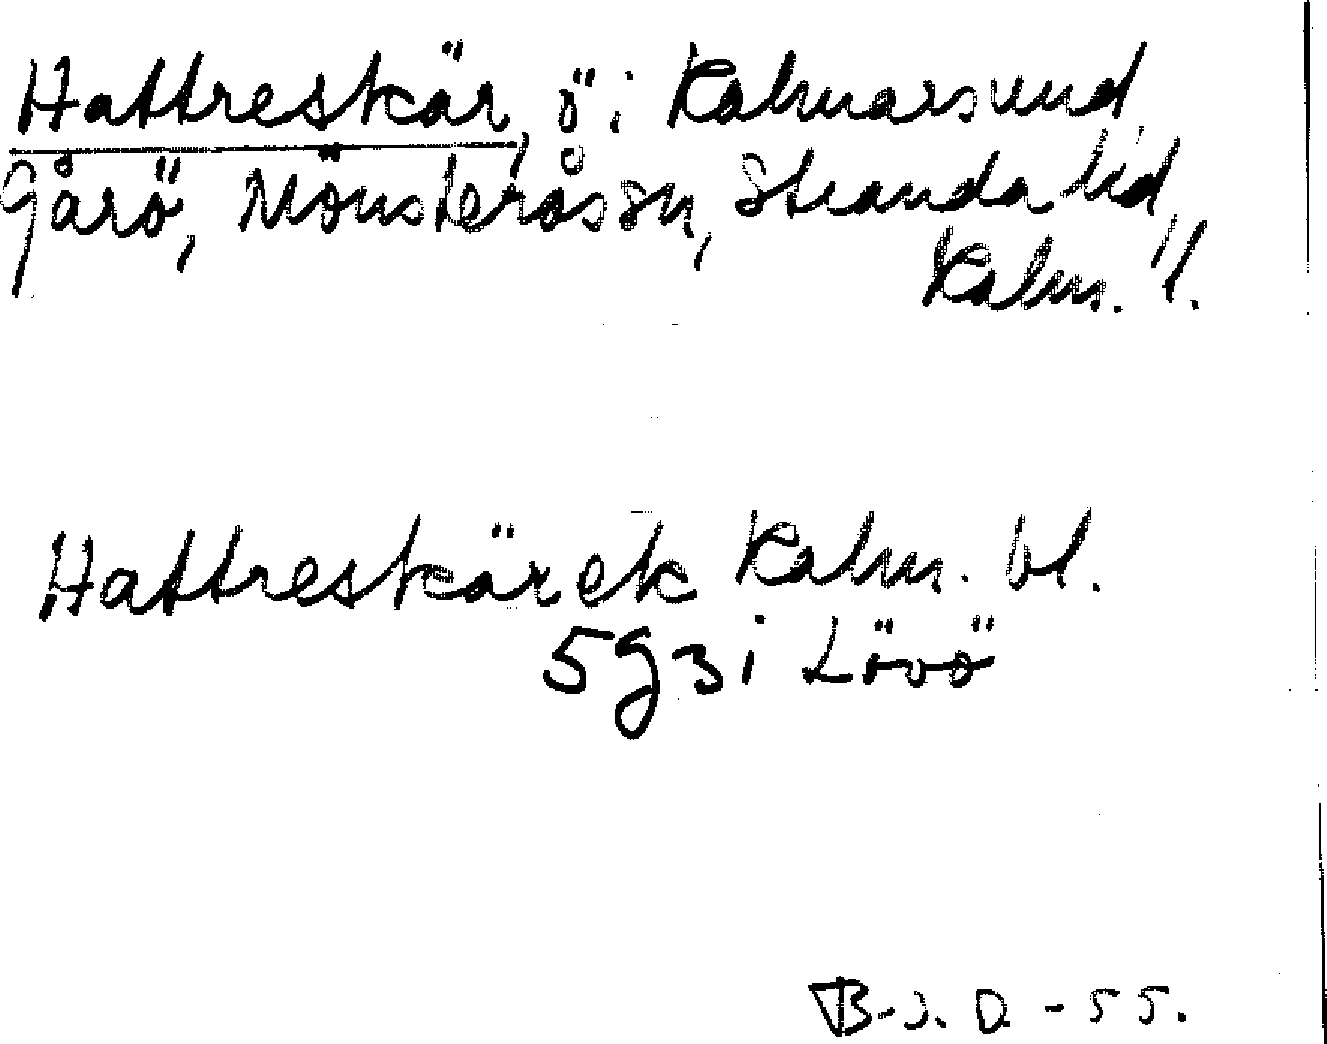 Hattreskär, ö i Kalmarsund,
Gårö, Mönsterås sn, Stranda hd,
Kalm. l.
Hattreskär ek Kalm. bl.
5g3i Lövö
B-J. D. - 55.